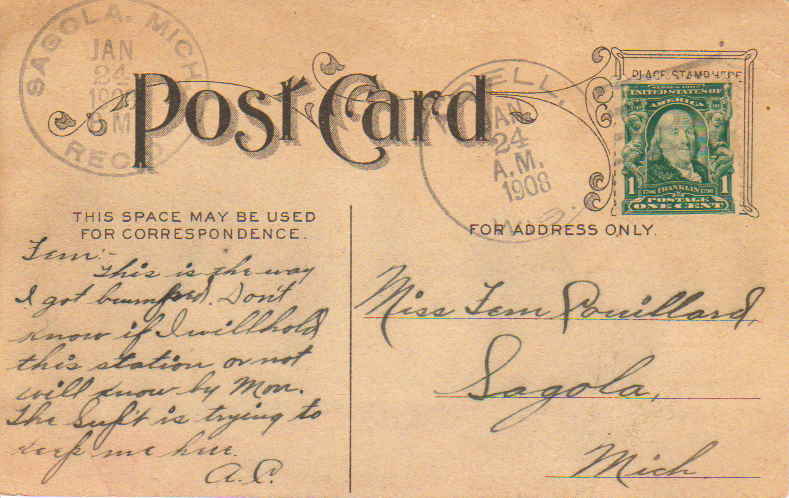 SAGOLA, MICH.
JAN
24
REC'D
Post Card
JAN
24
A.M.
1908
WIS.
PLACE STAMP HERE
UNITED STATES OF
AMERICA
1 FRANKLIN 1
POSTAGE
ONE CENT
THIS SPACE MAY BE USED
FOR CORRESPONDENCE.
FOR ADDRESS ONLY.
Fern:-
This is the way
I got bumped. Don't
know if I will hold
this station or not
will know by Mon.
The Sup't is trying to
keep me here.
A.C.
Miss Fern Pouillard,
Sagola,
Mich.